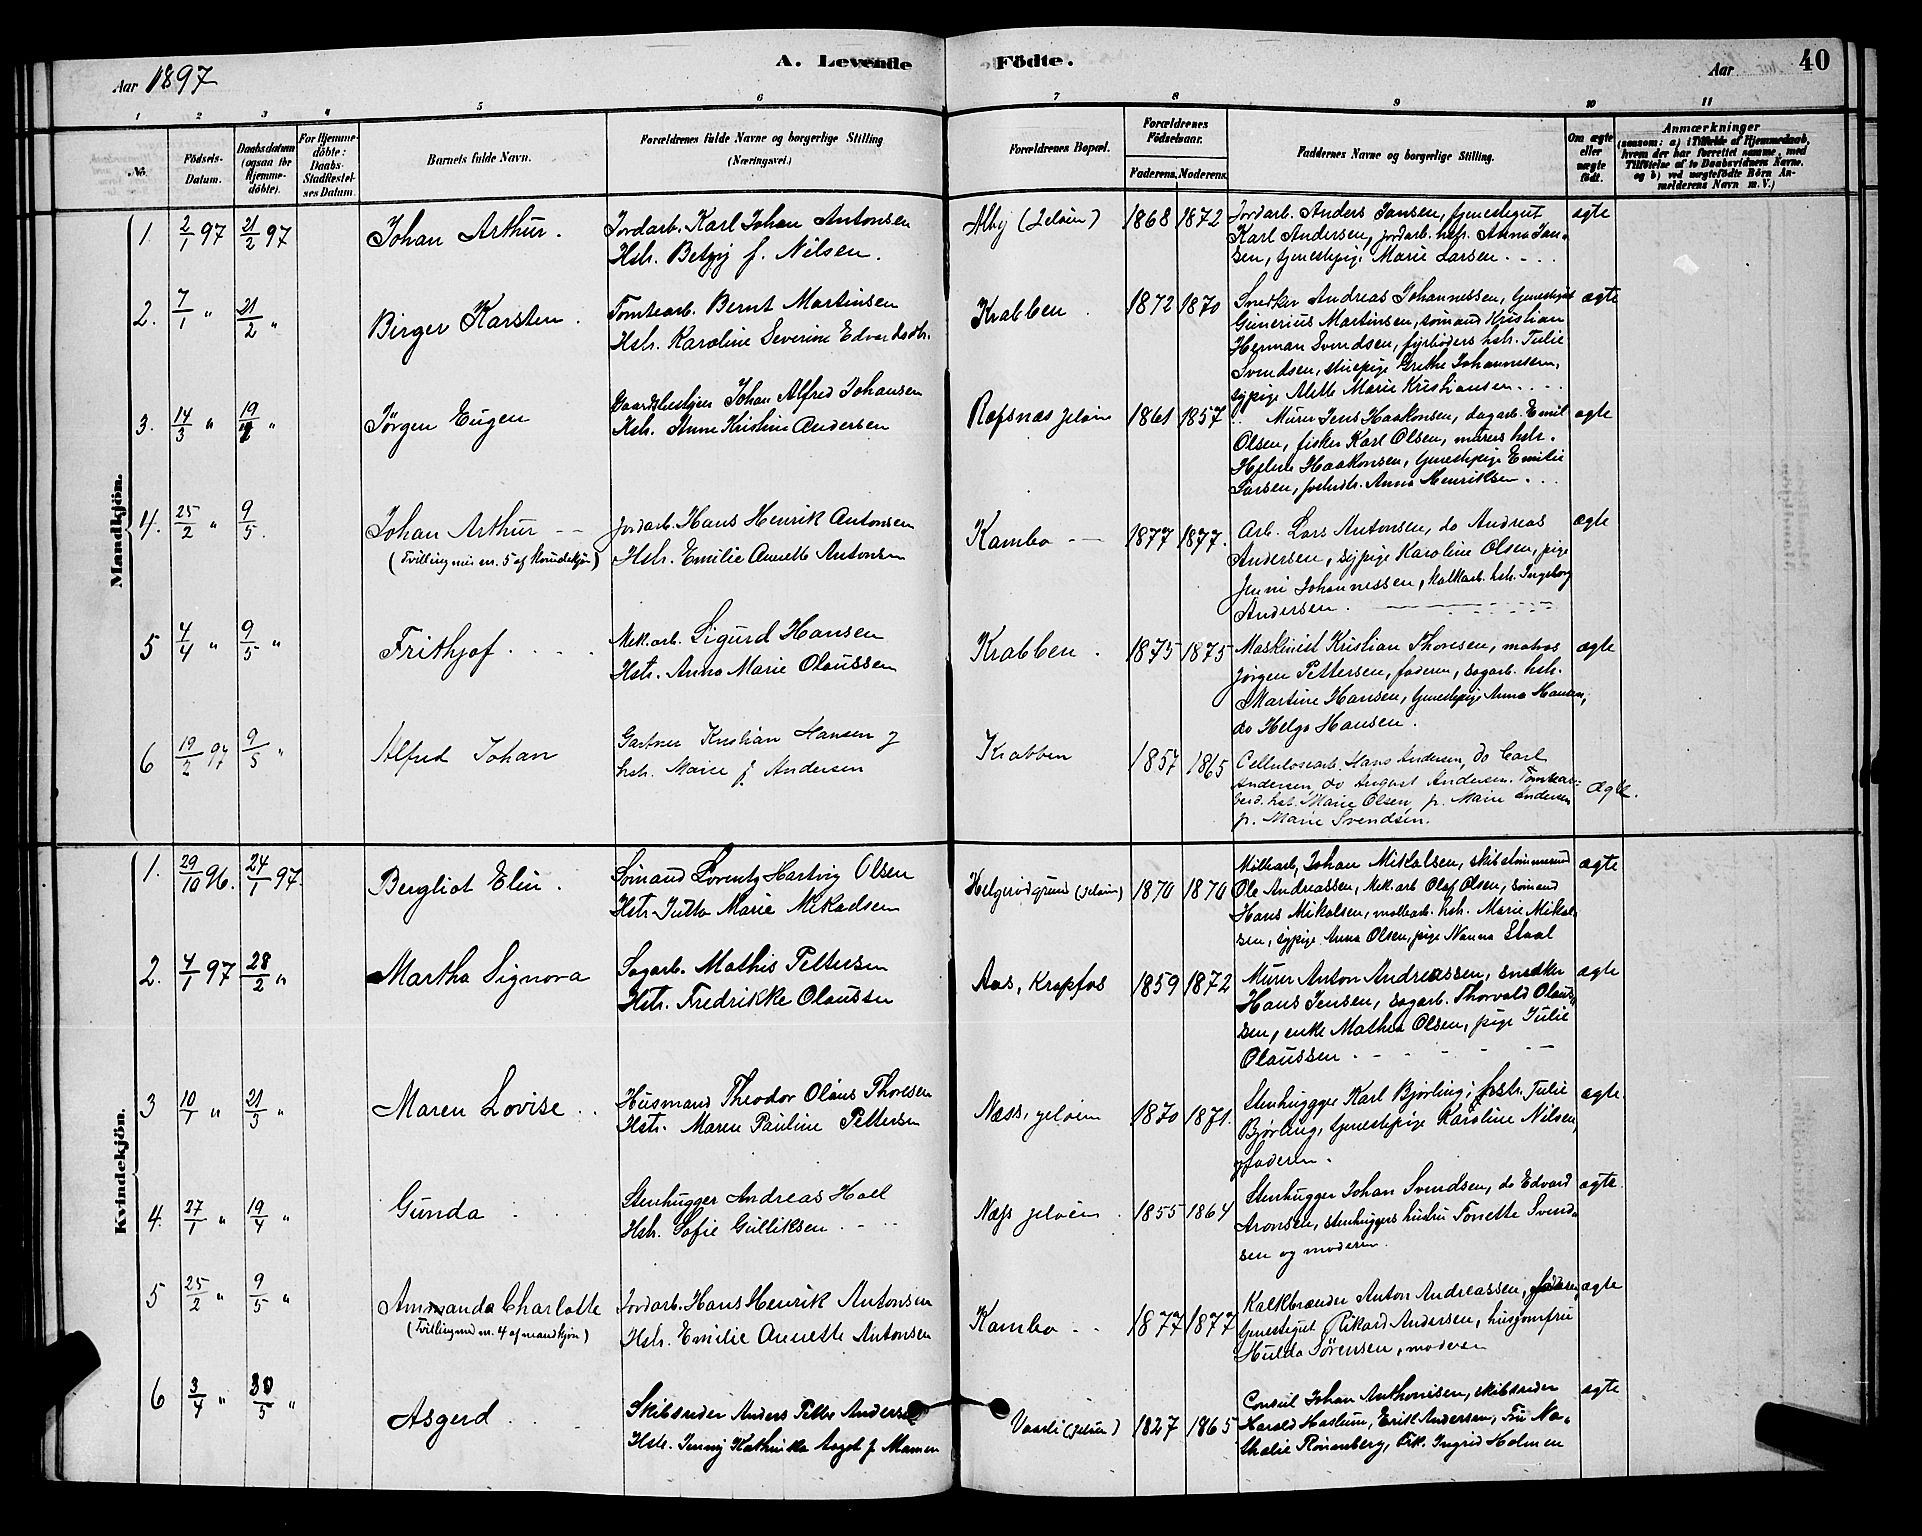 Aar 1897
A. Levende Födte.
Aar
40
1 2 3 4 5 6 7 8 9 10 11
No.
Födsels-Datum.
Daabsdatum (ogsaa for Hjemmedöbte).
For Hjemmedöbte: Daabs-Stadfestelses Datum.
Barnets fulde Navn.
Forældrenes fulde Navne og borgerlige Stilling (Næringsvei.)
Forældrenes Bopæl.
Forældrenes Födselsaar.
Faderens. Moderens.
Faddernes Navne og borgerlige Stilling.
Om ægte eller uægte födt.
Anmærkninger
(saasom: a) i Tilfælde af Hjemmedaab, hvem der har forrettet samme, med Tilföielse af to Daabsvidners Navne. og b) ved uægtefödte Börn Anmelderens Navn m. V.)
Mandkjön.
1. 2/1 97 21/2 97 Johan Arthur. Jordarb. Karl Johan Antonsen
Hstr. Betzy f. Nilsen.
Alby (Jeløen) 1868 1872 Jordarb. Anders Jansen, tjenestegut
Karl Andersen, jordarb. hstr. Anna Jan-
sen, tjenestepige Marie Larsen ægte
2. 7/1 " 21/2 " Birger Karsten. Tomtearb. Bernt Martinsen
Hstr. Karoline Severine Edvardsdtr.
Krabben. 1872 1870 Snedker Andreas Johannessen, tjenestegut
Gunerius Martinsen, sömand Kristian
Herman Svendsen, fyrböders hstr. Julie
Svendsen, stuepige Grethe Johannesen,
sypige Alette Marie Kristiansen ægte
3. 14/3 " 19/4 " Jørgen Eugen Gaardbestyrer Johan Alfred Johansen
Hstr. Anne Kristine Andersen
Refsnæs Jeløen 1861 1857 Murer Jens Haakonsen, dagarb. Emil
Olsen, fisker Karl Olsen, murers hstr.
Helene Haakonsen, tjenestepige Emilie
Larsen, Anna Henriksen. ægte
4. 25/2 " 9/5. Johan Arthur
(Tvilling med nr. 5 af Kvindekjön)
Jordarb. Hans Henrik Antonsen
Hstr. Emilie Annette Antonsen
Kambo 1877 1877. Arb. Lars Antonsen, do Andreas
Andersen, sypige Karoline Olsen, pige
Jenni Johannessen, kalkarb. hstr. Ingeborg
Andersen. ægte
5 4/4 " 9/5 " Frithjof. Mek.arb. Sigurd Hansen
Hstr. Anna Marie Olaussen
Krabben. 1875 1875 Maskinist Kristian Thoresen, matros
Jørgen Pettersen, faderen, sagarb. hstr.
Martine Hansen, tjenestepige Anna Hansen,
do Helga Hansen. ægte
6 19/2 97 9/5 " Alfred Johan Gartner Kristian Hansen
hstr. Marie f. Andersen
Krabben 1857 1865 Cellulosearb. Hans Andersen, do Carl
Andersen, do August Andersen. Tomtear-
beid. hst. Marie Olsen, p. Marie Andersen
p. Marie Svendsen. ægte.
Kvindekjön.
1. 29/10 96. 24/1 97. Bergliot Elin. Sömand Lorentz Hartvig Olsen
Hstr. Jutta Marie Mikaelsen
Helgerødgrund (Jeløen) 1870 1870 Möllearb. Johan Mikalsen, skibstömmermand
Ole Andreassen, Mek.arb Olaf Olsen, sömand
Hans Mikalsen, mollearb. hstr. Marie Mikal-
sen, sypige Anna Olsen, pige Nanna Staal ægte
2. 4/1 97 28/2 " Martha Signora Sagarb. Mathis Pettersen
Hstr. Fredrikke Olaussen
Aas, Krapfos 1859 1872 Murer Anton Andreassen, snedker
Hans Jensen, sagarb. Thorvald Olaus-
sen, enke Mathea Olsen, pige Julie
Olaussen ægte
3 10/1 " 21/3 " Maren Lovise Husmand Theodor Olaus Thoresen
Hstr. Maren Pauline Pettersen
Næss, Jeløen 1870 1871. Stenhugger Karl Bjørling, hstr. Julie
Bjørling, tjenestepige Karoline Nilsen,
faderen. ægte
4. 27/1 " 19/4 " Gunda Stenhugger Andreas Hoel
Hstr. Sofie Gulliksen
Næss Jeløen 1855 1864 Stenhugger Johan Svendsen, do Edvard
Aronsen, stenhuggers hustru Tonette Svend-
sen og moderen ægte
5 25/2 " 9/5 " Ammanda Charlotte
(Tvilling med nr. 4 af mandkjön)
Jordarb. Hans Henrik Antonsen
Hstr. Emilie Annette Antonsen
Kambo 1877 1877 Kalkbrænder Anton Andreassen, faderen,
tjenestegut Rikard Andersen, husjomfru
Hulda Sørensen, moderen ægte
6 3/4 " 30/5 " Asgerd Skibsreder Anders Petter Andersen
Hstr. Jenny Kathinka Aagot f. Mamen
Vaarli (Jeløen) 1827 1865 Consul Johan Anthonisen, skibsreder
Harald Haslum, Erik Andersen, Fru Na-
thalie Ronenberg, Frk. Ingrid Holmen ægte